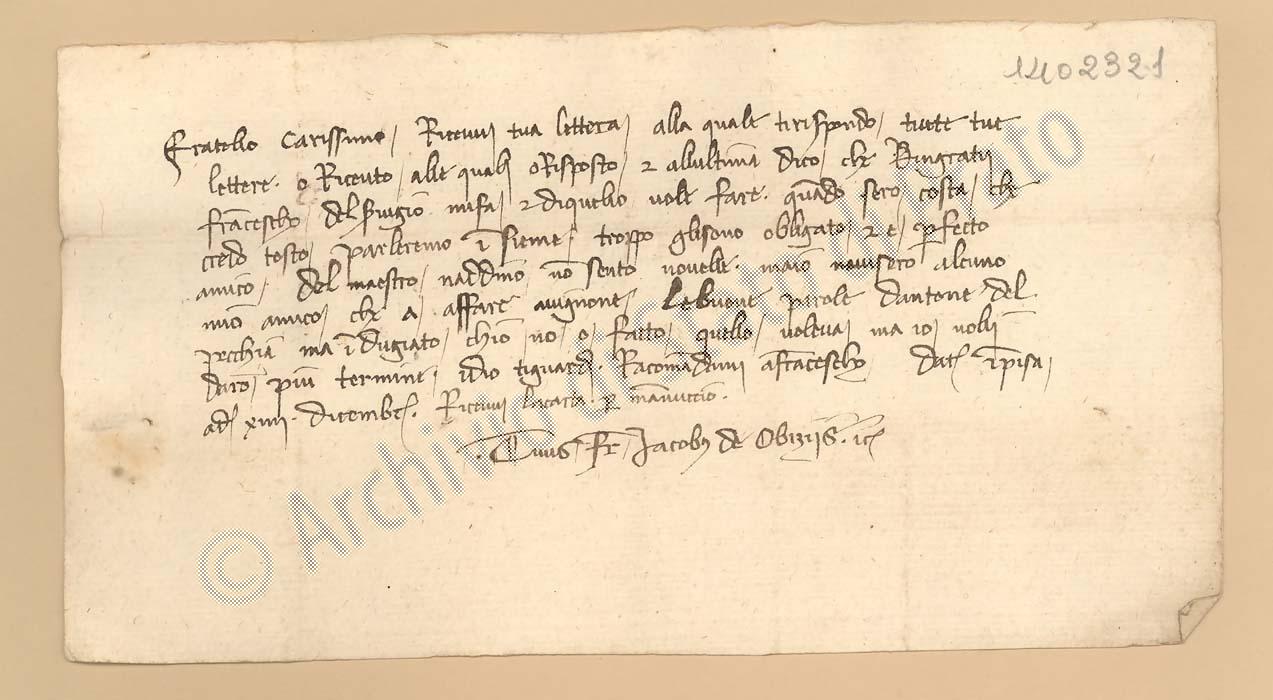 1402321
Fratello Carissimo / Ricevvi tua lettera / alla quale ti rispondo / tutte tue
lettere. o Ricevto / alle quali o Risposto / 7 allultima dico che Ringratii
franc̄escho / del s̄vigio mi fa / 7 di quello vole fare. quādo sero costa / che
credo tosto / parleremo ī sieme / troppo gli sono obligato / 7 e ꝑfecto
amico / del maestro / naddino / nō sento novelle. maio alcuno
mio amico / che a affare avignone / Le buone parole dantone del
pecchia ma ī dugiato / chio no o fatto / quello / voleva / ma io noli
daro / più termine. idio ti guardi. Racomādami a frācescho Dat̄ ī pisa /
ad̄ xiiii. dicembr̄. Ricevvi la carta ꝑ manuccio.
. Tuus Fr̄ Jacobus de Obiziis.
© Archivio di Stato Prato